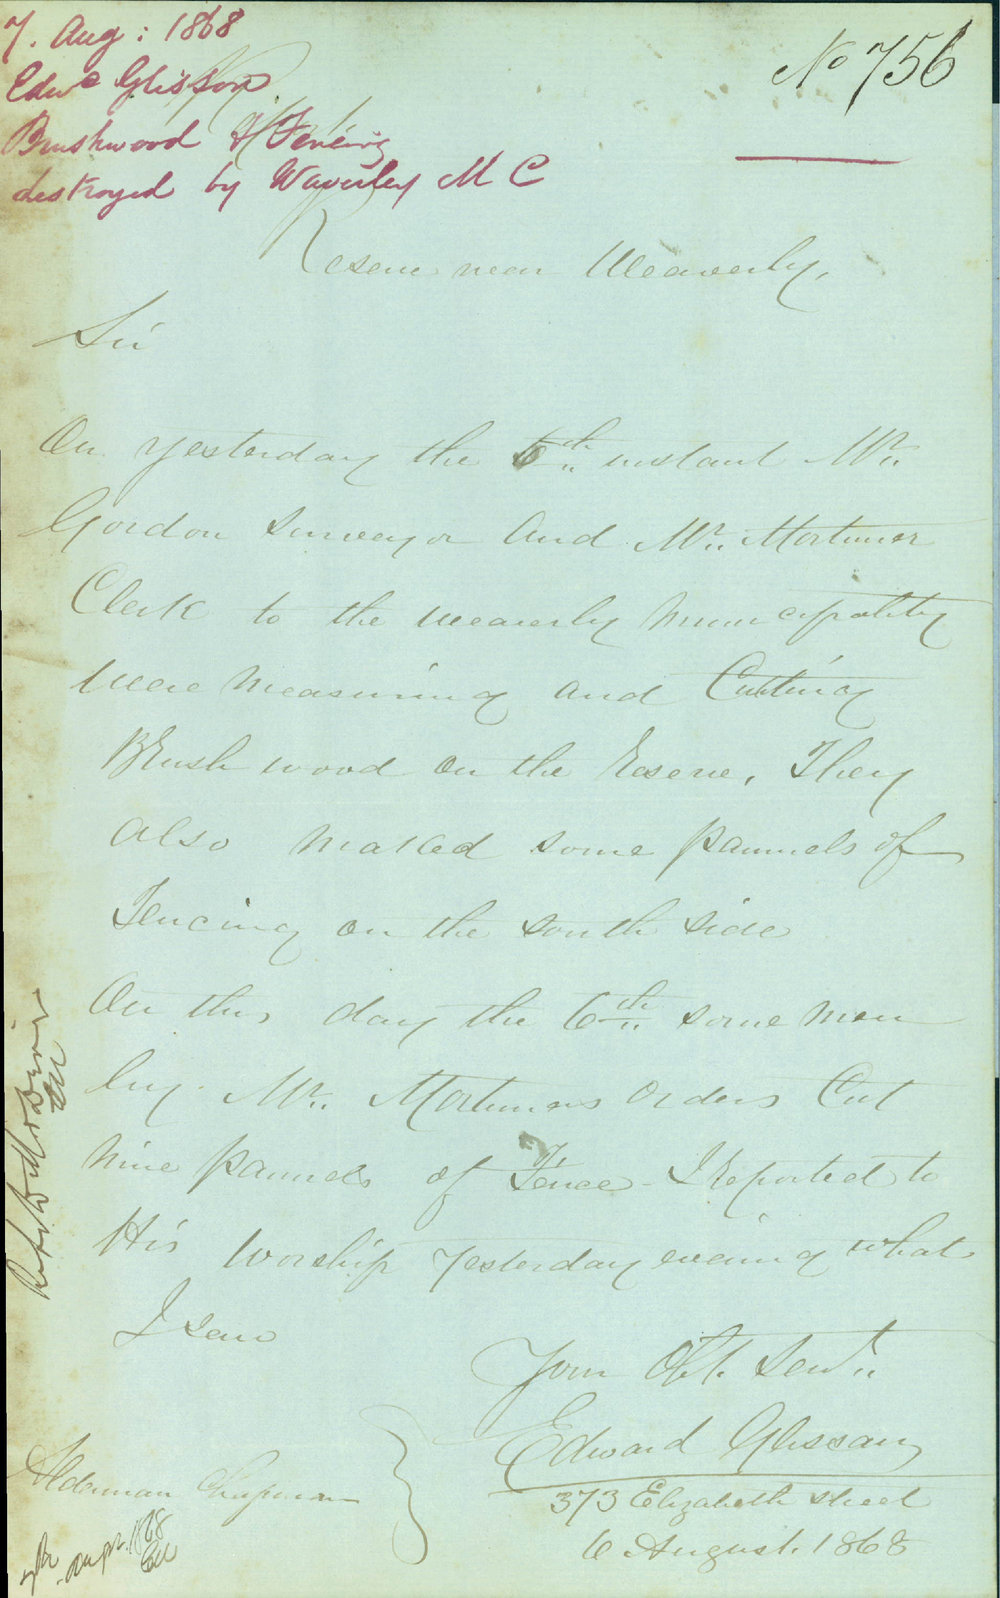 7. Aug: 1868
Edwd Glissan
Brushwood & Fencing
destroyed by Waverley M C
No 756
Reserve near Weaverly,
Sir
On yesterday the 5th instant Mr.
Gordon Surveyor and Mr. Mortimer
Clerk to the Weaverly Municipality
Were Measuring and Cutting
Brush wood on the Reserve. They
also marked some pannels of
Fencing on the south side
On this day the 6th some men
by Mr. Mortimers orders Cut
nine pannels of Fence - I Reported to
His Worship yesterday evening what
I saw
Your Obt. Servt.
Edward Glissan
373 Elizabeth street
6 August. 1868
Alderman Chapman
7th Augt. 1868